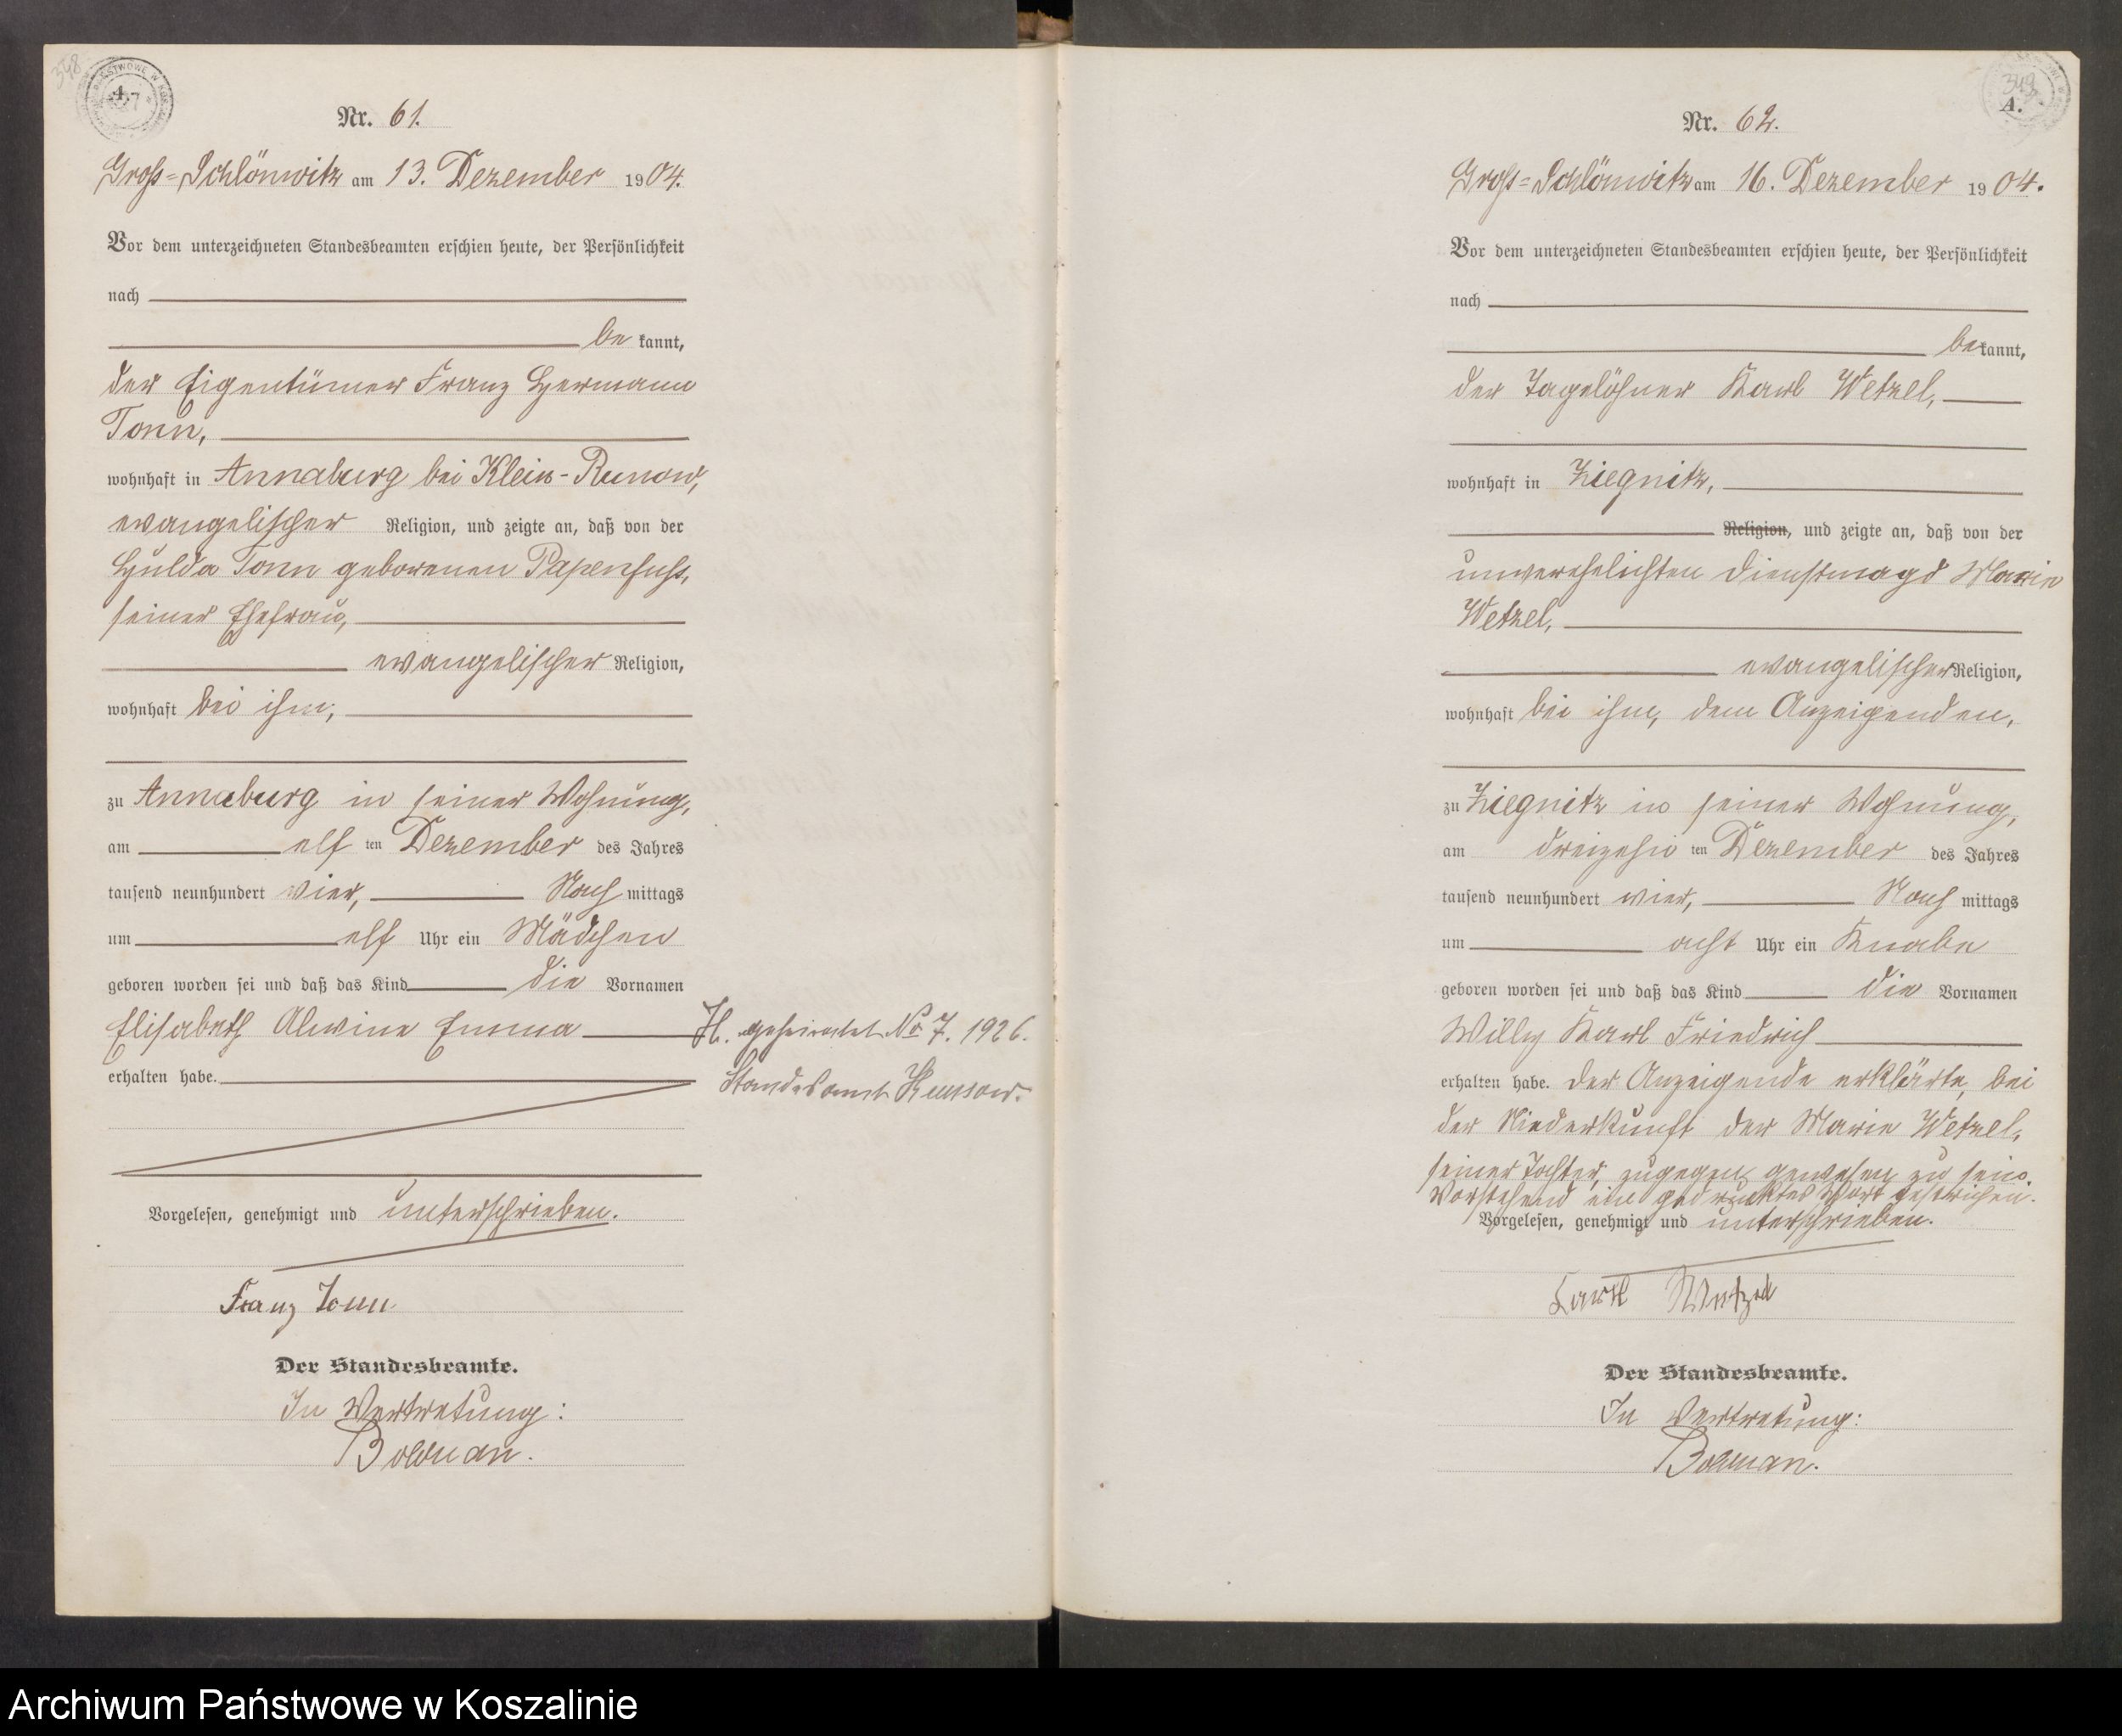 348
A.
Nr. 61.
Gross-Schlönwitz am 13. Dezember 1904.
Vor dem unterzeichneten Standesbeamten erschien heute, der Persönlichkeit
nach
be kannt,
der Eigentümer Franz Hermann
Tonn,
wohnhaft in Annaburg bei Klein-Runow,
evangelischer Religion, und zeigte an, daß von der
Hulda Tonn geborenen Papenfuss,
seiner Ehefrau,
evangelischer Religion,
wohnhaft bei ihm,
zu Annaburg in seiner Wohnung,
am elf ten Dezember des Jahres
tausend neunhundert vier, Nach mittags
um elf Uhr ein Mädchen
geboren worden sei und daß das Kind die Vornamen
Elisabeth Alwine Emma
erhalten habe.
Vorgelesen, genehmigt und unterschrieben.
Franz Tonn
Der Standesbeamte.
In Vertretung:
H. geheiratet No 7. 1926.
Standesamt
349
A.
Nr. 62.
Gross-Schlönwitz am 16. Dezember 1904.
Vor dem unterzeichneten Standesbeamten erschien heute, der Persönlichkeit
nach
be kannt,
der Tagelöhner Karl Wetzel,
wohnhaft in Ziegnitz,
Religion, und zeigte an, daß von der
unverehelichten Dienstmagd Marie
Wetzel,
evangelischer Religion,
wohnhaft bei ihm, dem Anzeigenden,
zu Ziegnitz in seiner Wohnung,
am dreizehn ten Dezember des Jahres
tausend neunhundert vier, Nach mittags
um acht Uhr ein Knabe
geboren worden sei und daß das Kind die Vornamen
Willy Karl Friedrich
erhalten habe. Der Anzeigende erklärte, bei
der Niederkunft der Marie Wetzel,
seiner Tochter, zugegen gewesen zu sein.
Vorstehend ein gedrucktes Wort gestrichen.
Vorgelesen, genehmigt und unterschrieben.
Karl Wetzel
Der Standesbeamte.
In Vertretung:
Archiwum Państwowe w Koszalinie